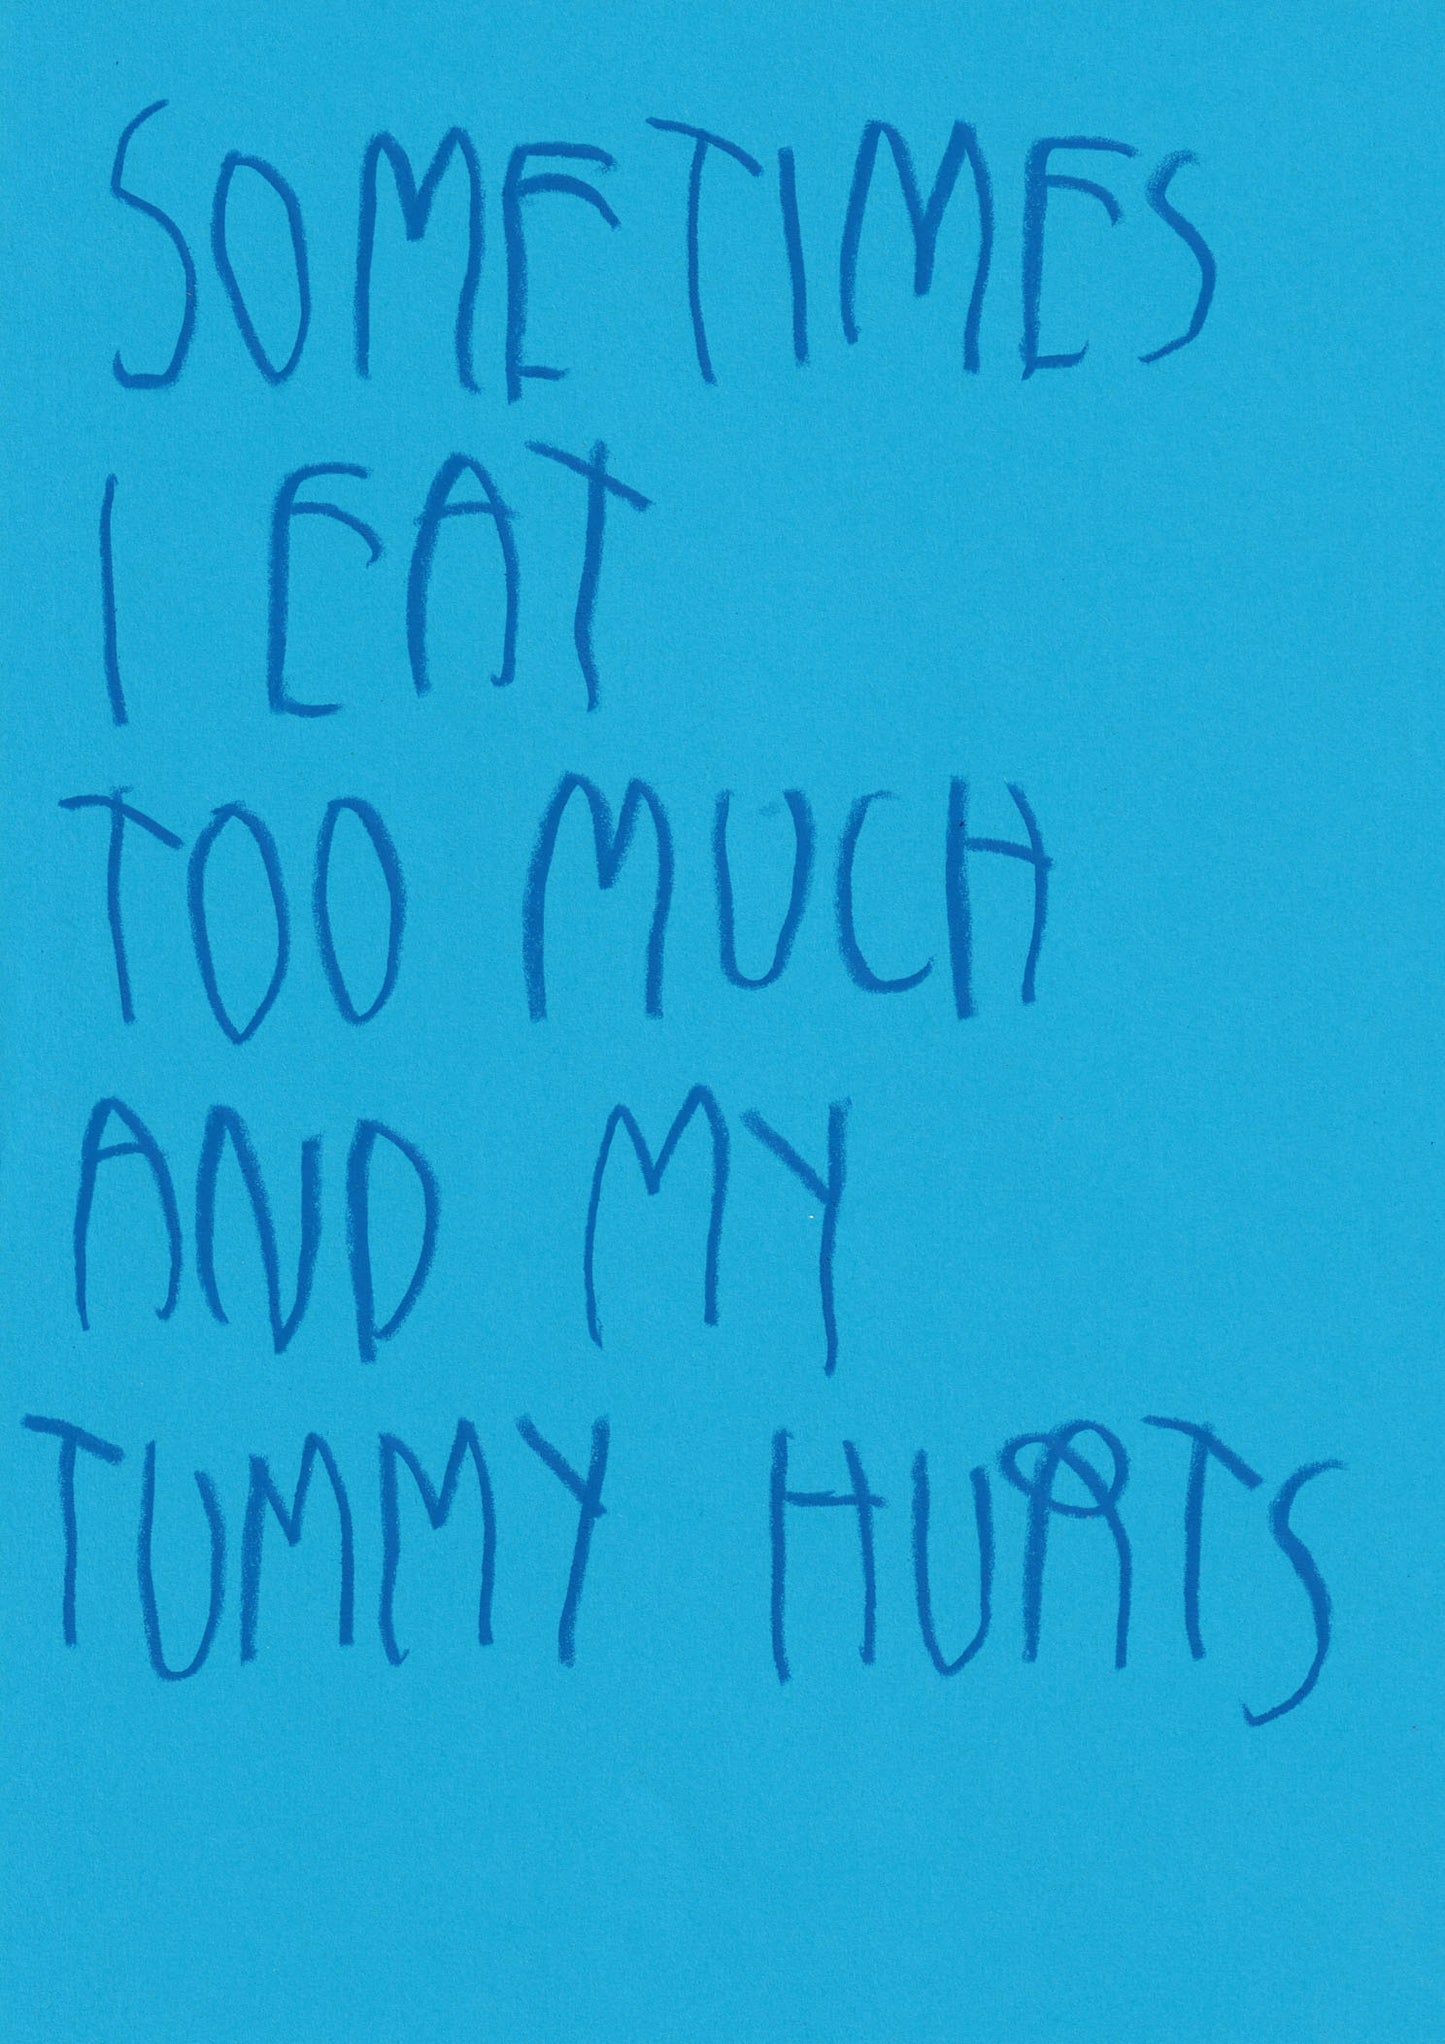 SOMETIMES
I EAT
TOO MUCH
AND MY
TUMMY HURTS